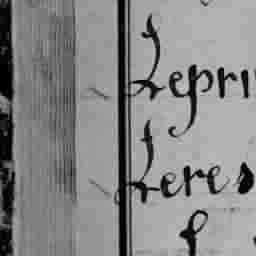 Lepri
Leres